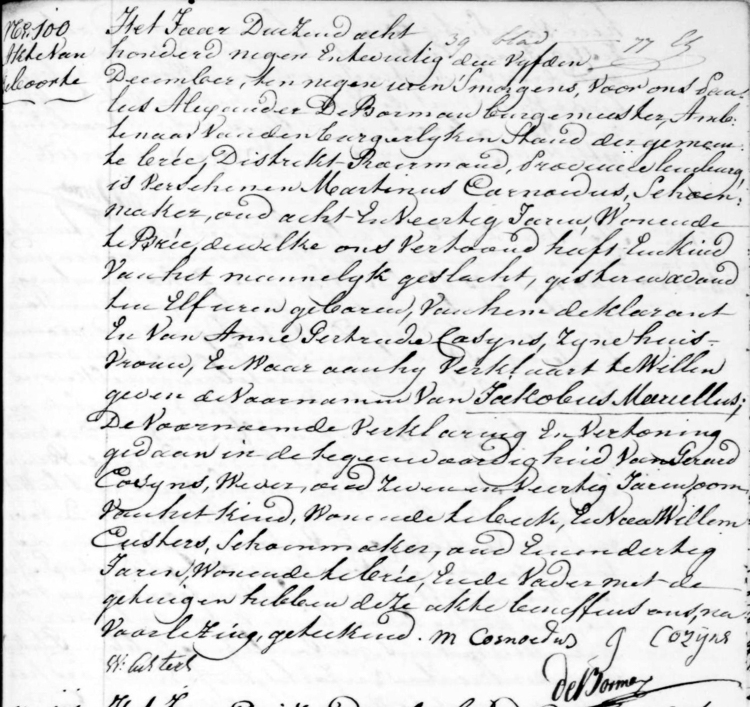 No. 100
Akte Van
Geboorte
Het Jaer Duizend acht
39 blad 77
honderd negen En twintig den Vyfden
December, ten negen uren Smorgens, Voor ons Pau-
lus Alexander De Borman burgemeester, Amb-
tenaar Van den burgerlyken Stand der gemeen-
te brée, Distrikt Roermond, provincie limburg,
is Verschenen Martinus Cornoedus, Schoen-
maker, oud acht En Veertig Jaren, Wonende
te Brée, dewelke ons Vertoond heeft Een kind
Van het mannelyk geslacht, gisteren avond
ten Elf uren geboren, Van hem deklarant
En Van Anne Gertrude Cosyns, Zyne huis-
Vrouw, En Waar aan hy Verklaart te Willen
geven de Voornamen Van Jakobus Marcellus;
De Voornoemde Verklaring En Vertoning
gedaan in de tegenwoordigheid Van Gerard
Cosyns, Wever, oud Zeven en Veertig Jaren, oom
Van het kind, Wonende te beek, En Willem
Custers, Schoenmaker, oud Een en dertig
Jaren, Wonende te brée, En de Vader met de
getuigen hebben deze akte beneffens ons, na
Voorlezing, geteekend. M Cornoedus G Cozyns
W: Custers
de Borman